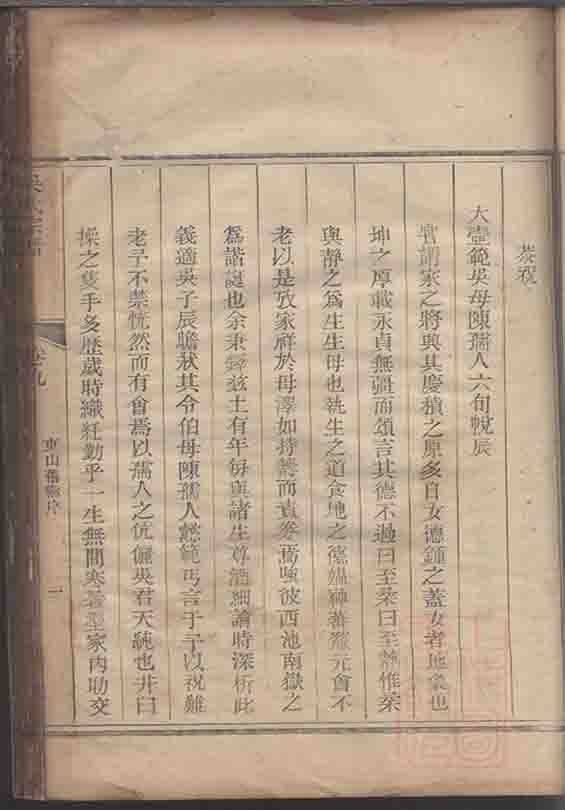 恭祝
大壼範吳母陳孺人六旬帨辰
嘗謂家之將興其慶積之原多自女德鍾之蓋女者地象也
坤之厚載永貞無疆而頌言其德不過曰至柔曰至靜惟柔
與靜之為生生母也執生之道食地之德媼神蕃釐元會不
老以是攷家祥於母澤如持籌而責券焉嗤彼西池南嶽之
為諧誕也余秉鐸茲土有年每與諸生尊酒細論時深析此
義適吳子辰瞻狀其令伯母陳孺人懿範丐言于予以祝難
老予不禁恍然而有會焉以孺人之伉儷吳君天統也井臼
操之隻手多歷歲時織紝勤乎一生無間寒暑型家內助交
卷九
東山舊
一